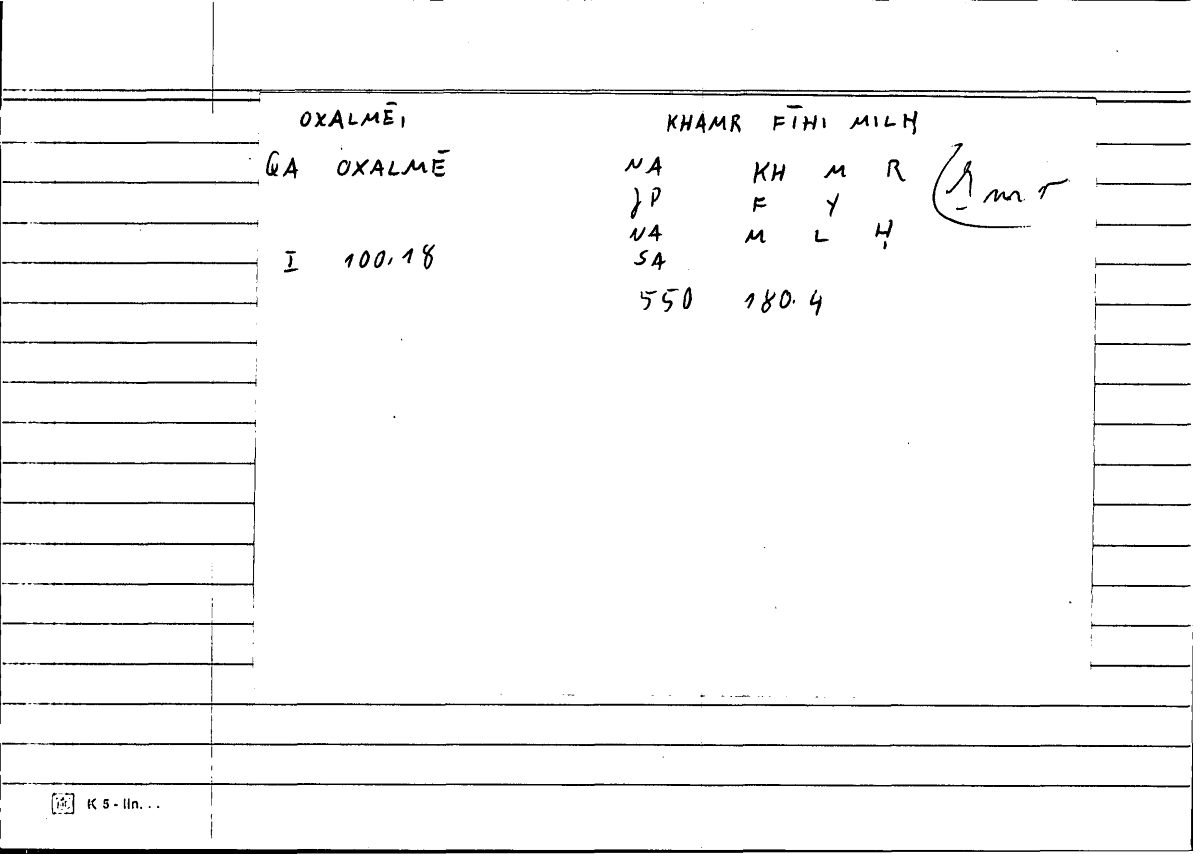 OXALMĒI KHAMR FĪHI MILḤ
QA OXALMĒ NA KH M R
JP F Y
NA M L Ḥ
I 100.18 SA
550 180.4
K 5 - lin. . .